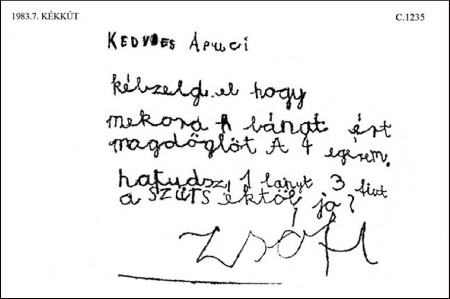 1983.7. KÉKKÚT
C.1235
KEDVES ÁPUCI
kébzeld el hogy
mekora A bánat ért
magdöglöt A 4 egérem.
hatudsz, 1 lányt 3 fiut
a szüts éktöl, jó?
Zsófi